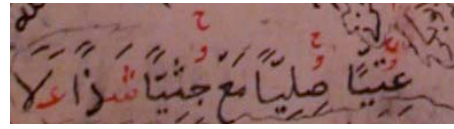 عِتِيًّا صِلِيًّا مَعْ جِثِيًّا شَذًا عَلَا